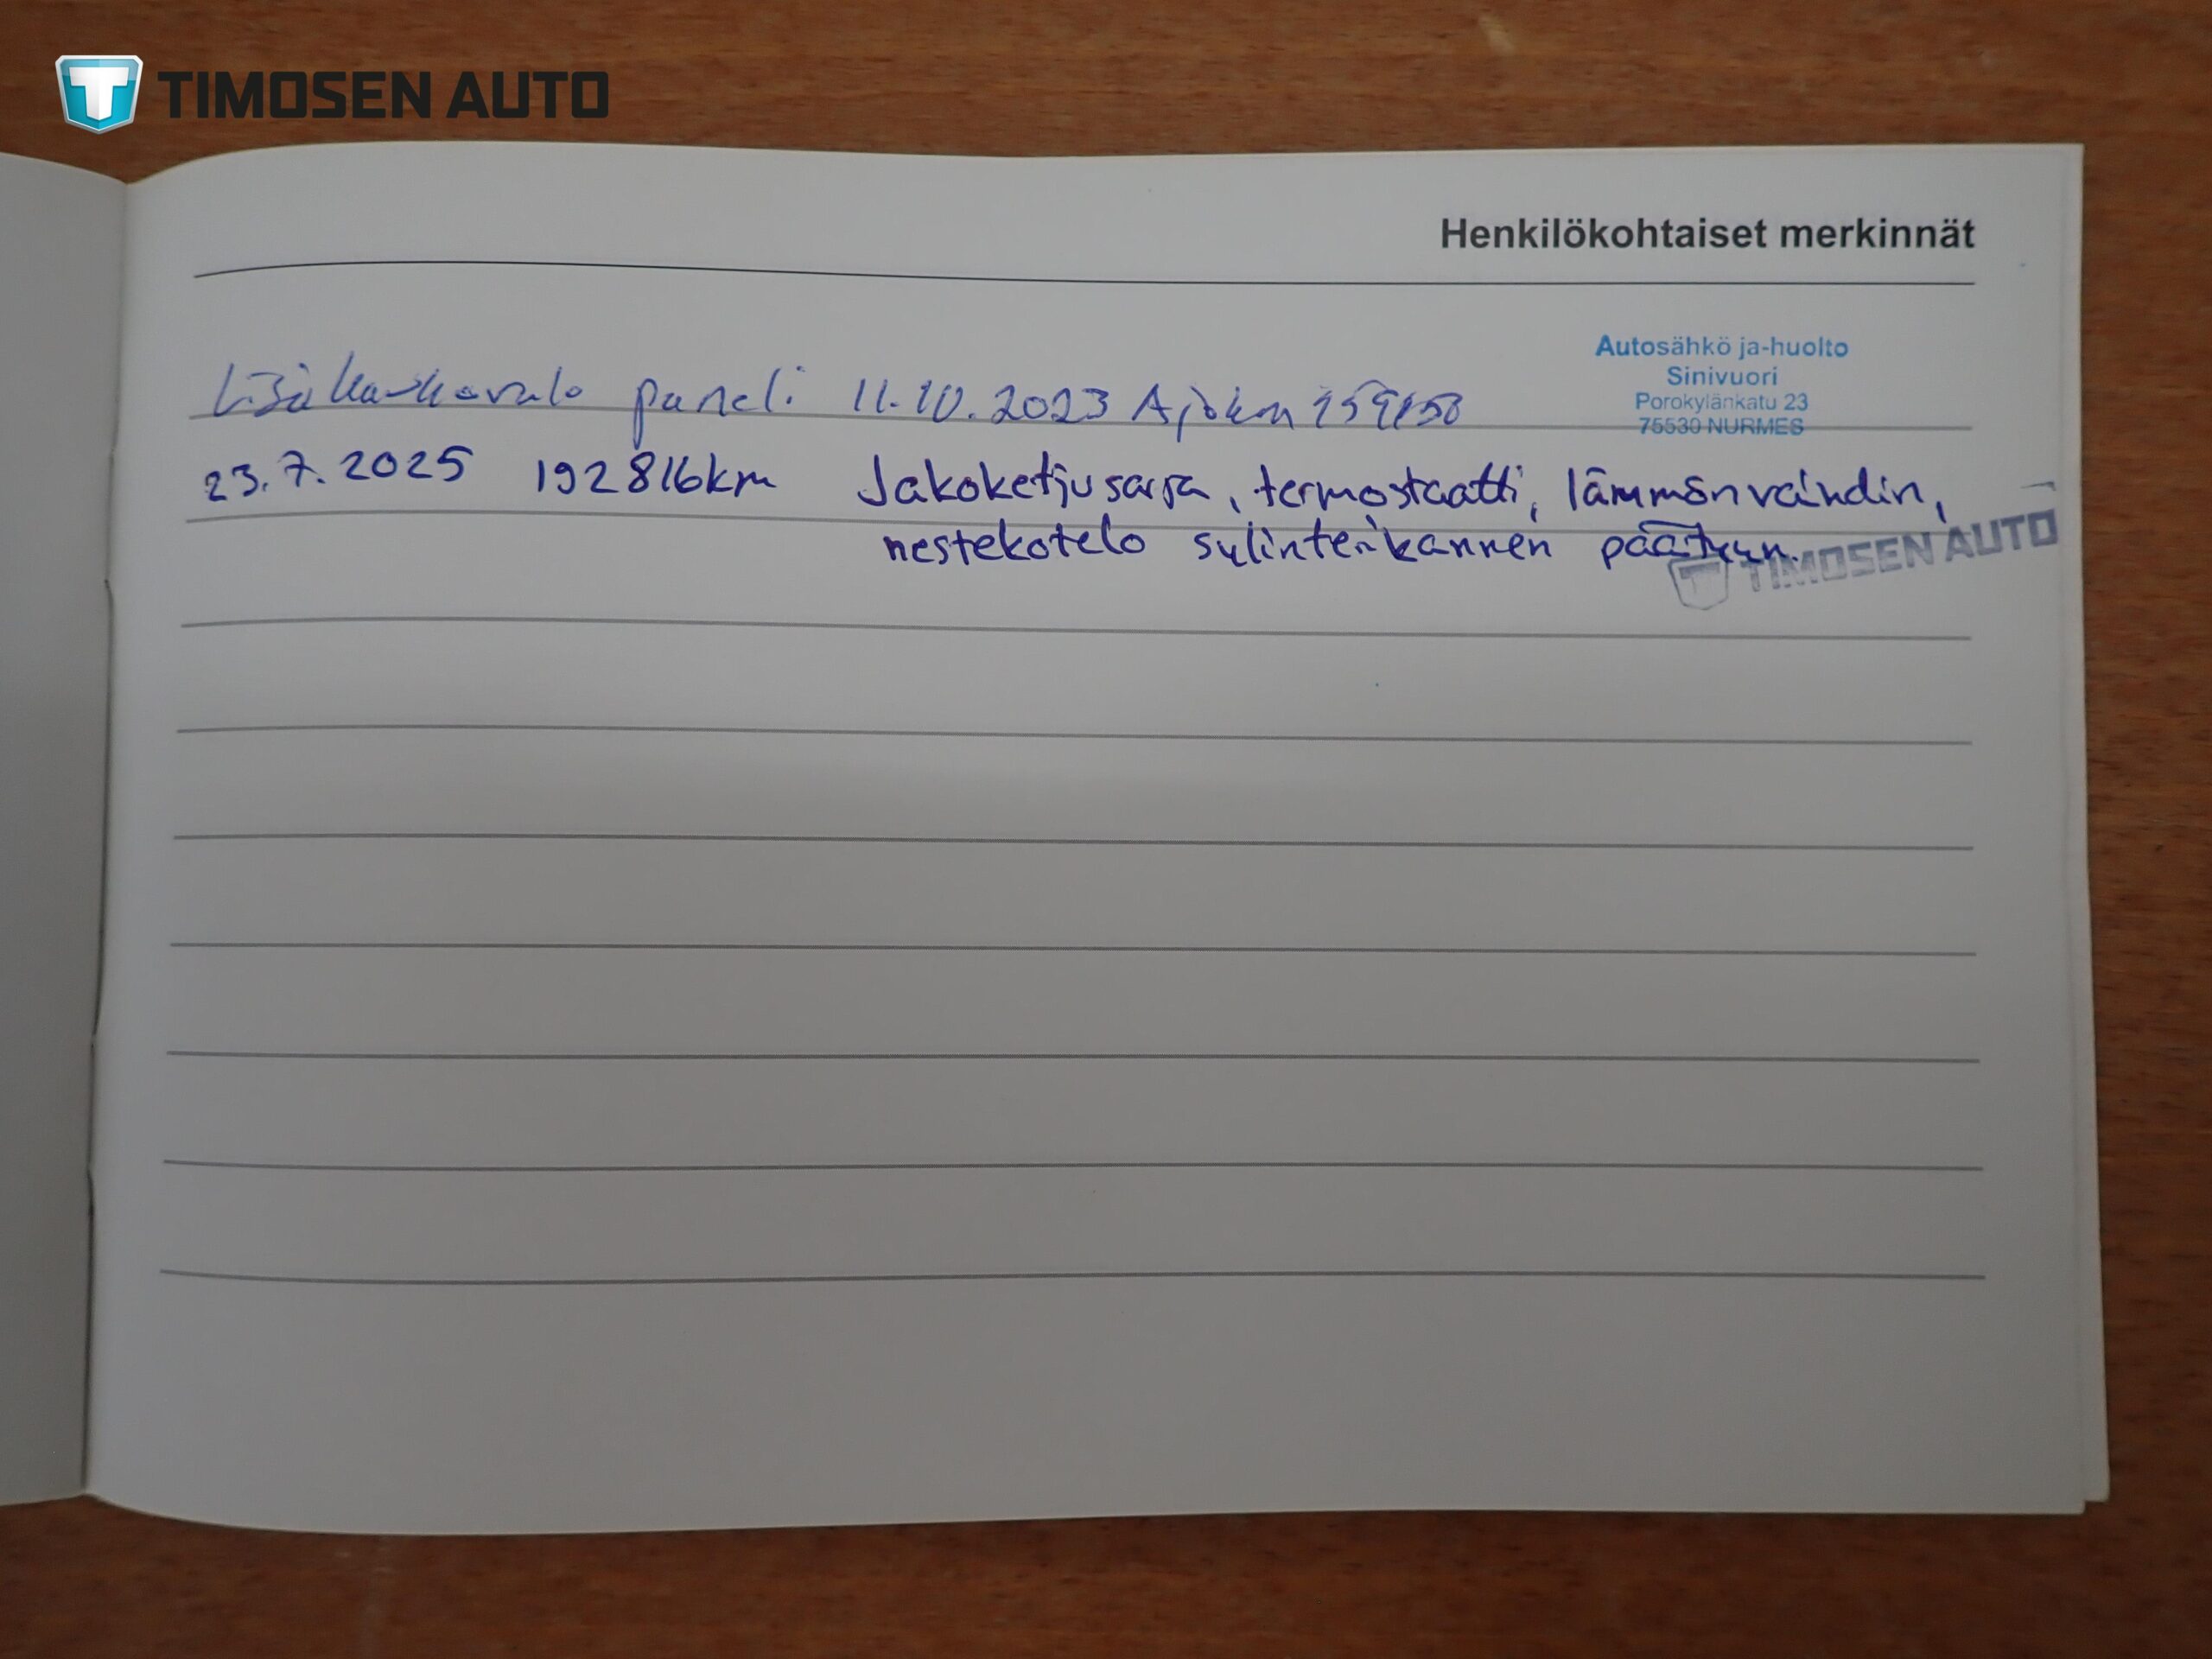 TIMOSEN AUTO
Henkilökohtaiset merkinnät
Autosähkö ja-huolto
Sinivuori
Porokylänkatu 23
75530 NURMES
Lisäkaukovalo paneli 11.10.2023 Ajokm
23.7.2025 192816km Jakoketjusarja, termostaatti, lämmönvaihdin,
nestekotelo sylinterikannen päätyyn.
TIMOSEN AUTO